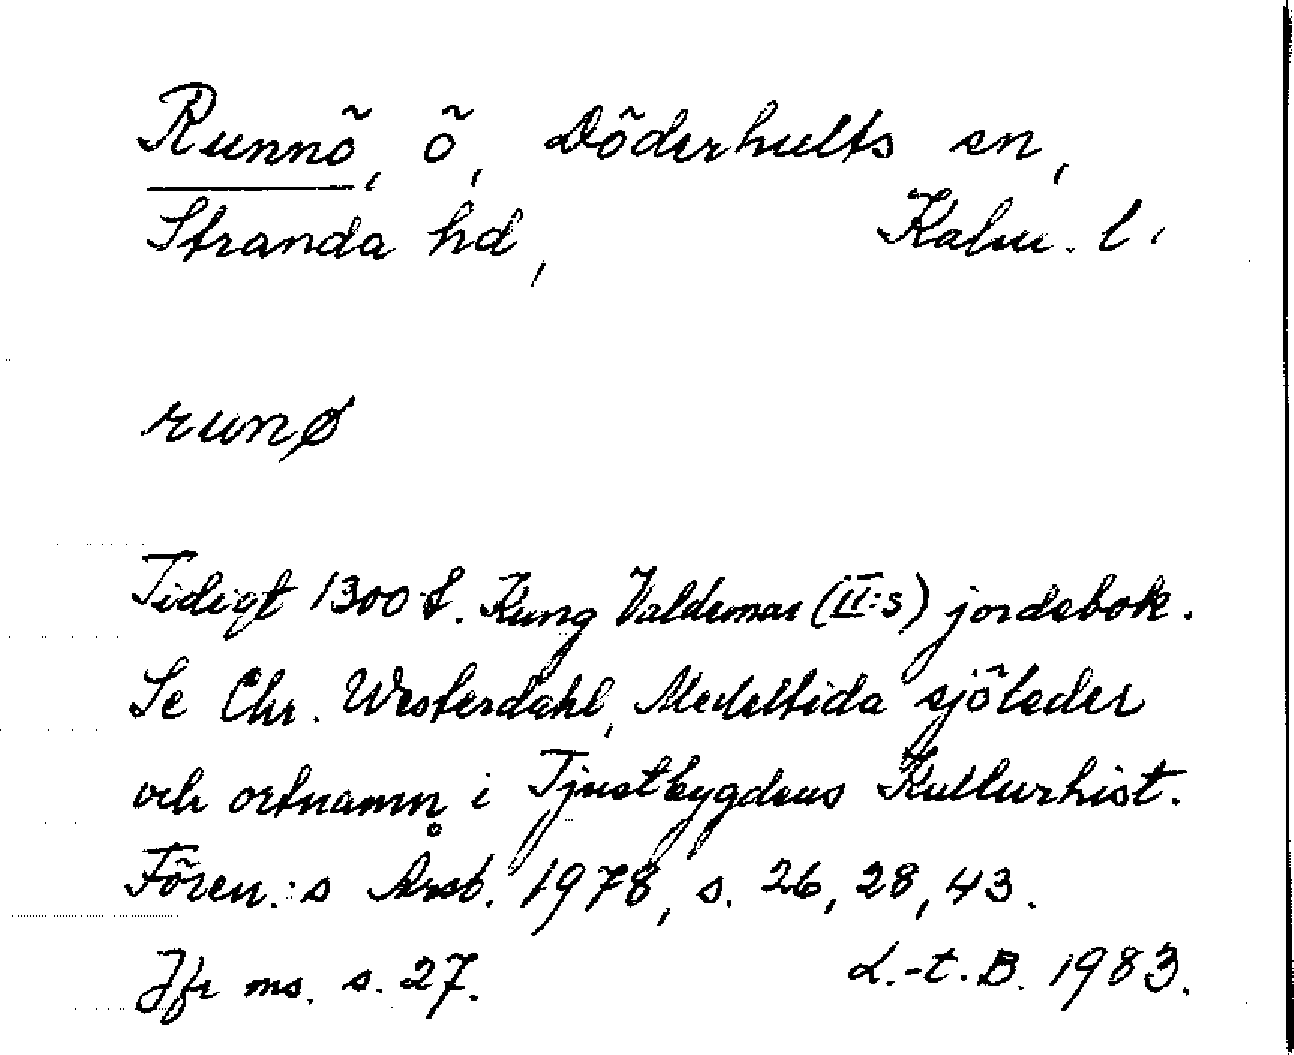 Runnö, ö, Döderhults sn,
Stranda hd, Kalm. l.
runø
Tidigt 1300 t. Kung Valdemar (II:s) jordebok.
Se Chr. Westerdahl, Medeltida sjöleder
och ortnamn i Tjustbygdens Kulturhist.
Fören.:s Årsb. 1978, s. 26, 28, 43.
Jfr ms. s. 27. L.-t. B. 1983.